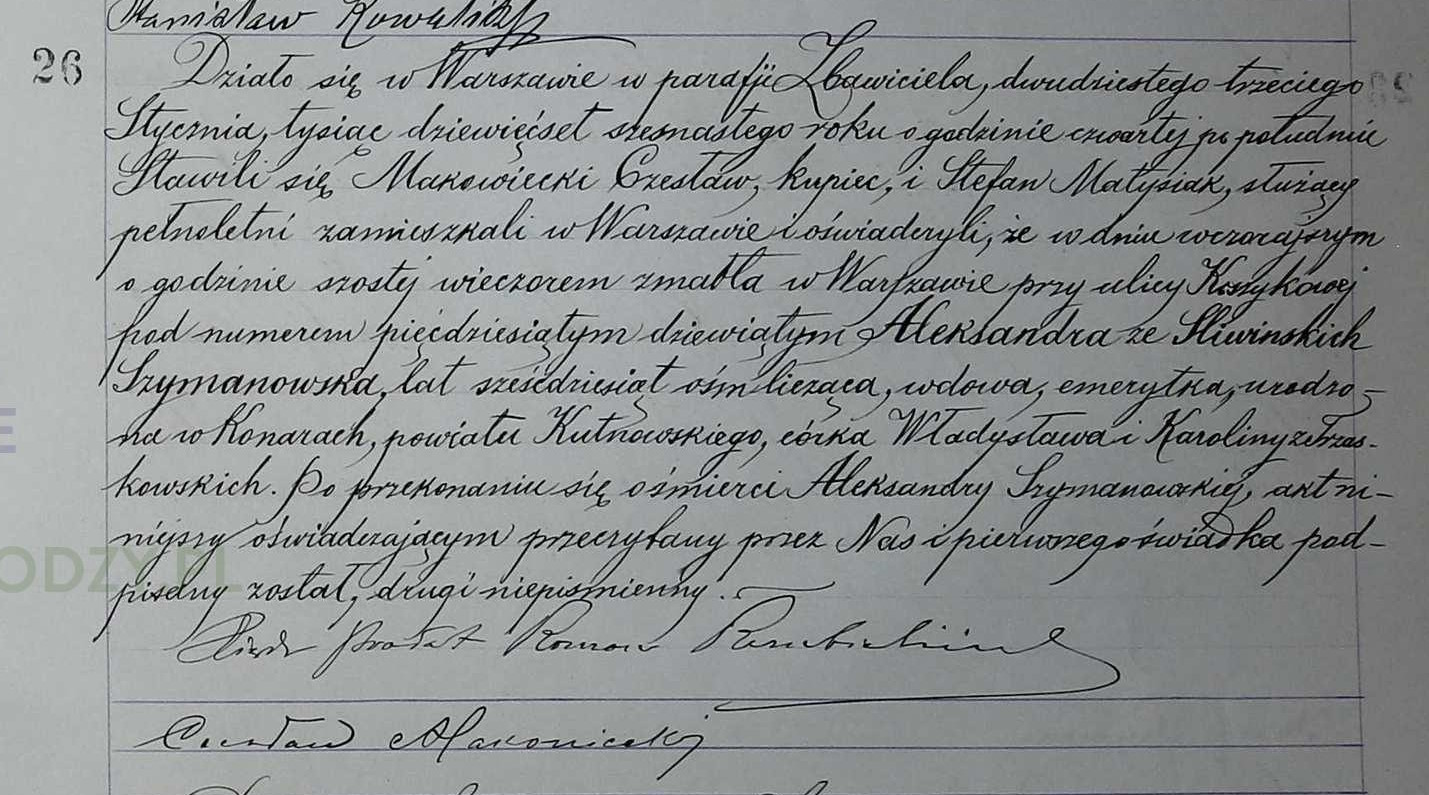 Stanisław Kowalski
26
Działo się w Warszawie w parafji Zbawiciela, dwudziestego trzeciego
Stycznia, tysiąc dziewięćset szesnastego roku o godzinie czwartej po południu
Stawili się Makowiecki Czesław, kupiec, i Stefan Matysiak, służący
pełnoletni zamieszkali w Warszawie i oświadczyli, że w dniu wczorajszym
o godzinie szóstej wieczorem zmarła w Warszawie przy ulicy Koszykowej
pod numerem pięćdziesiątym dziewiątym Aleksandra ze Śliwinskich
Szymanowska, lat sześćdziesiąt ośm licząca, wdowa, emerytka, urodzo-
na w Konarach, powiatu Kutnowskiego, córka Władysława i Karoliny z Trzas-
kowskich. Po przekonaniu się o śmierci Aleksandry Szymanowskiej, akt ni-
niejszy oświadczającym przeczytany przez Nas i pierwszego świadka pod-
pisany został, drugi niepiśmienny.
Prałat Roman
Czesław Makowiecki
ODZY.PL
E